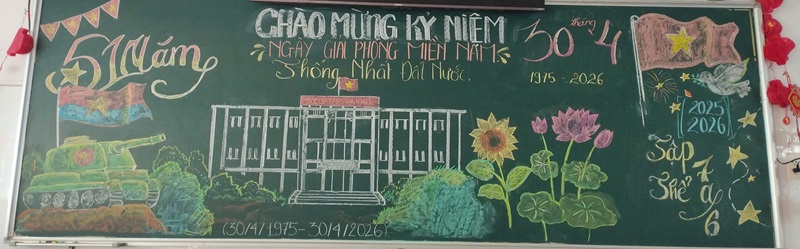 51 Năm
CHÀO MỪNG KỶ NIỆM
NGÀY GIẢI PHÓNG MIỀN NAM
Thống Nhất Đất Nước.
30 tháng 4
1975 - 2026
2025
2026
Tập
Thể
7a6
(30/4/1975-30/4/2026)